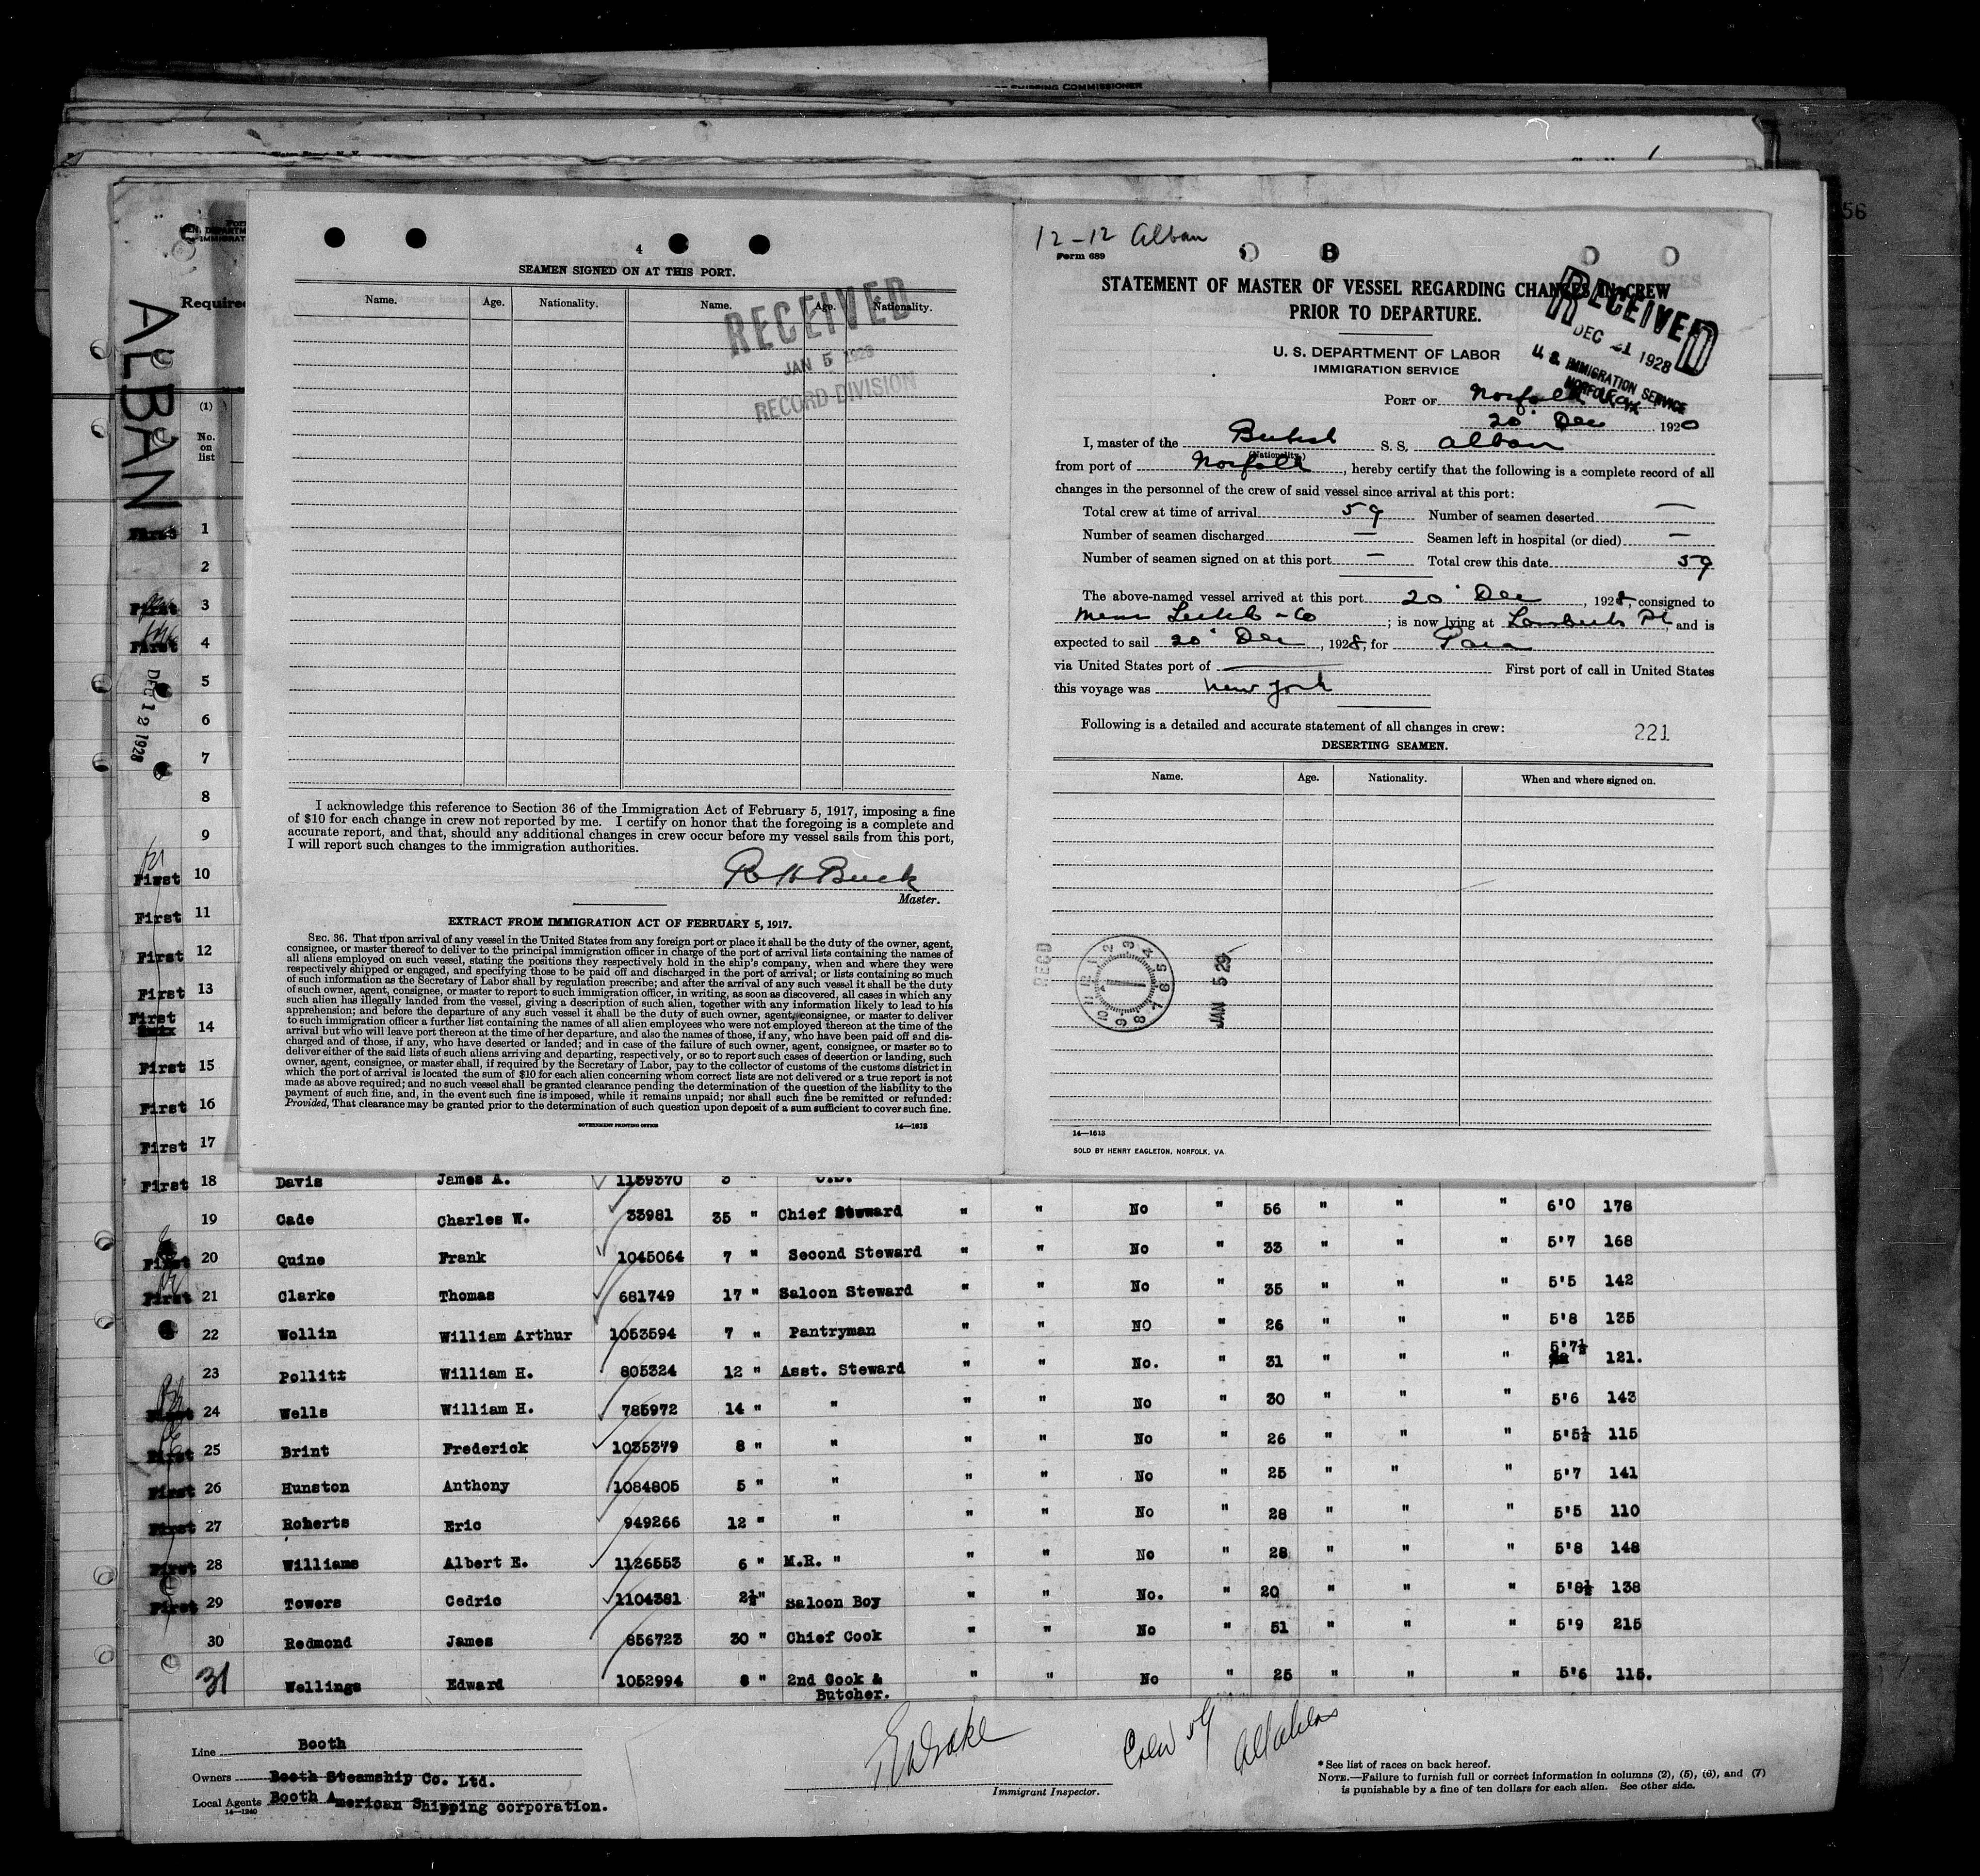 OF SHIPPING COMMISSIONER
1
56
ALBAN
DEC 12 1928
Required
(1)
No.
on
list
First 1
2
First 3
First 4
5
6
7
8
9
First 10
First 11
First 12
First 13
First 14
First 15
First 16
First 17
4
SEAMEN SIGNED ON AT THIS PORT.
Name. Age. Nationality. Name. Age. Nationality.
RECEIVED
JAN 5 1929
RECORD DIVISION
I acknowledge this reference to Section 36 of the Immigration Act of February 5, 1917, imposing a fine
of $10 for each change in crew not reported by me. I certify on honor that the foregoing is a complete and
accurate report, and that, should any additional changes in crew occur before my vessel sails from this port,
I will report such changes to the immigration authorities.
R H Buck
Master.
EXTRACT FROM IMMIGRATION ACT OF FEBRUARY 5, 1917.
SEC. 36. That upon arrival of any vessel in the United States from any foreign port or place it shall be the duty of the owner, agent,
consignee, or master thereof to deliver to the principal immigration officer in charge of the port of arrival lists containing the names of
all aliens employed on such vessel, stating the positions they respectively hold in the ship's company, when and where they were
respectively shipped or engaged, and specifying those to be paid off and discharged in the port of arrival; or lists containing so much
of such information as the Secretary of Labor shall by regulation prescribe; and after the arrival of any such vessel it shall be the duty
of such owner, agent, consignee, or master to report to such immigration officer, in writing, as soon as discovered, all cases in which any
such alien has illegally landed from the vessel, giving a description of such alien, together with any information likely to lead to his
apprehension; and before the departure of any such vessel it shall be the duty of such owner, agent, consignee, or master to deliver
to such immigration officer a further list containing the names of all alien employees who were not employed thereon at the time of the
arrival but who will leave port thereon at the time of her departure, and also the names of those, if any, who have been paid off and dis-
charged and of those, if any, who have deserted or landed; and in case of the failure of such owner, agent, consignee, or master so to
deliver either of the said lists of such aliens arriving and departing, respectively, or so to report such cases of desertion or landing, such
owner, agent, consignee, or master shall, if required by the Secretary of Labor, pay to the collector of customs of the customs district in
which the port of arrival is located the sum of $10 for each alien concerning whom correct lists are not delivered or a true report is not
made as above required; and no such vessel shall be granted clearance pending the determination of the question of the liability to the
payment of such fine, and, in the event such fine is imposed, while it remains unpaid; nor shall such fine be remitted or refunded:
Provided, That clearance may be granted prior to the determination of such question upon deposit of a sum sufficient to cover such fine.
GOVERNMENT PRINTING OFFICE 14—1613
12-12 Alban
Form 689
B
STATEMENT OF MASTER OF VESSEL REGARDING CHANGES IN CREW
PRIOR TO DEPARTURE.
RECEIVED
DEC 21 1928
U. S. IMMIGRATION SERVICE
NORFOLK, VA.
U. S. DEPARTMENT OF LABOR
IMMIGRATION SERVICE
PORT OF Norfolk Va
20" Dec 1920
I, master of the British S. S. Alban
(Nationality.)
from port of Norfolk, hereby certify that the following is a complete record of all
changes in the personnel of the crew of said vessel since arrival at this port:
Total crew at time of arrival 59 Number of seamen deserted —
Number of seamen discharged — Seamen left in hospital (or died) —
Number of seamen signed on at this port — Total crew this date 59
The above-named vessel arrived at this port 20" Dec, 1928, consigned to
Mess - Co; is now lying at Lamberts Pt, and is
expected to sail 20" Dec, 1928, for Para
via United States port of — First port of call in United States
this voyage was New York
Following is a detailed and accurate statement of all changes in crew: 221
DESERTING SEAMEN.
Name. Age. Nationality. When and where signed on.
RECD
1 2 3 4 5 6 7 8 9 10 11 12
JAN 5 29
14—1613
SOLD BY HENRY EAGLETON, NORFOLK, VA
First 18 Davis James A. 1139370 3
19 Cade Charles W. 33981 35 " Chief Steward " " No " 56 " " " 6'0 178
First 20 Quine Frank 1045064 7 " Second Steward " " No " 33 " " " 5'7 168
First 21 Clarke Thomas 681749 17 " Saloon Steward " " No " 35 " " " 5'5 142
22 Wollin William Arthur 1053594 7 " Pantryman " " NO " 26 " " " 5'8 135
23 Pollitt William H. 805324 12 " Asst. Steward " " No. " 31 " " " 5'7½ 121.
First 24 Wells William H. 785972 14 " " " " No " 30 " " " 5'6 143
First 25 Brint Frederick 1035379 8 " " " " No " 26 " " " 5'5½ 115
First 26 Hunston Anthony 1084805 5 " " " " No " 25 " " " 5'7 141
First 27 Roberts Eric 949266 12 " " " " No " 28 " " " 5'5 110
First 28 Williams Albert E. 1126553 6 " M.R. " " " No " 28 " " " 5'8 148
First 29 Towers Cedric 1104381 2½" Saloon Boy " " No. " 20 " " " 5'8½ 138
30 Redmond James 856723 30 " Chief Cook " " No " 51 " " " 5'9 215
31 Wellings Edward 1052994 8 " 2nd Cook & " " No " 25 " " " 5'6 115.
Butcher.
Line Booth
Owners Booth Steamship Co. Ltd.
Local Agents Booth American Shipping corporation.
14—1240
Drake
Immigrant Inspector.
Crew 59
All aliens
* See list of races on back hereof.
NOTE.—Failure to furnish full or correct information in columns (2), (5), (6), and (7)
is punishable by a fine of ten dollars for each alien. See other side.